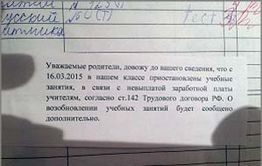 №
Тест
Уважаемые родители, довожу до вашего сведения, что с
16.03.2015 в нашем классе приостановлены учебные
занятия, в связи с невыплатой заработной платы
учителям, согласно ст.142 Трудового договора РФ. О
возобновлении учебных занятий будет сообщено
дополнительно.